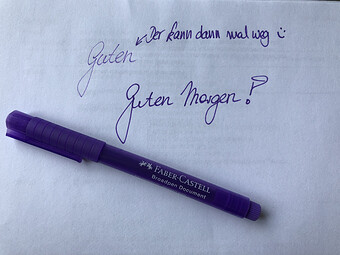 Der kann dann mal weg :)
Guten
Guten Morgen!
FABER-CASTELL
Broadpen Document